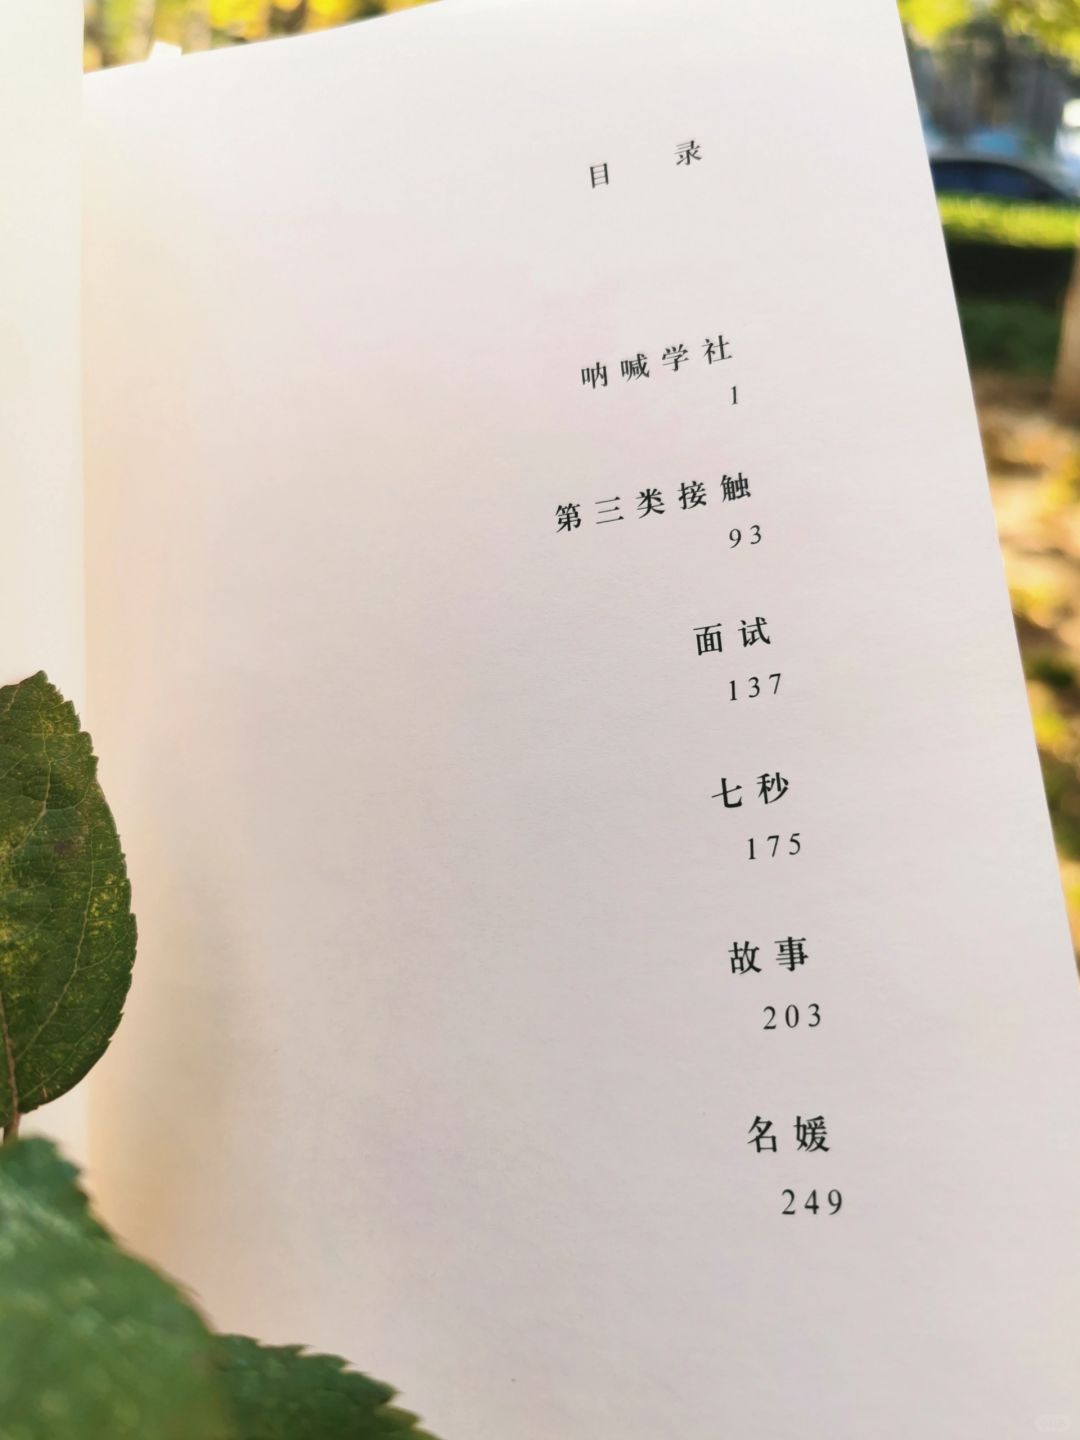 目 录
呐喊学社
1
第三类接触
93
面试
137
七秒
175
故事
203
名媛
249